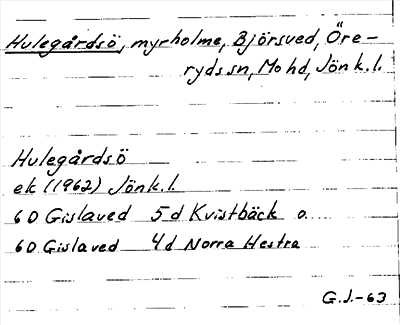 Hulegårdsö, myrholme, Björsved, Öre-
ryds sn, Mo hd, Jönk.l.
Hulegårdsö
ek (1962) Jönk.l.
6D Gislaved 5d Kvistbäck o.
6D Gislaved 4d Norra Hestra
G.J.-63